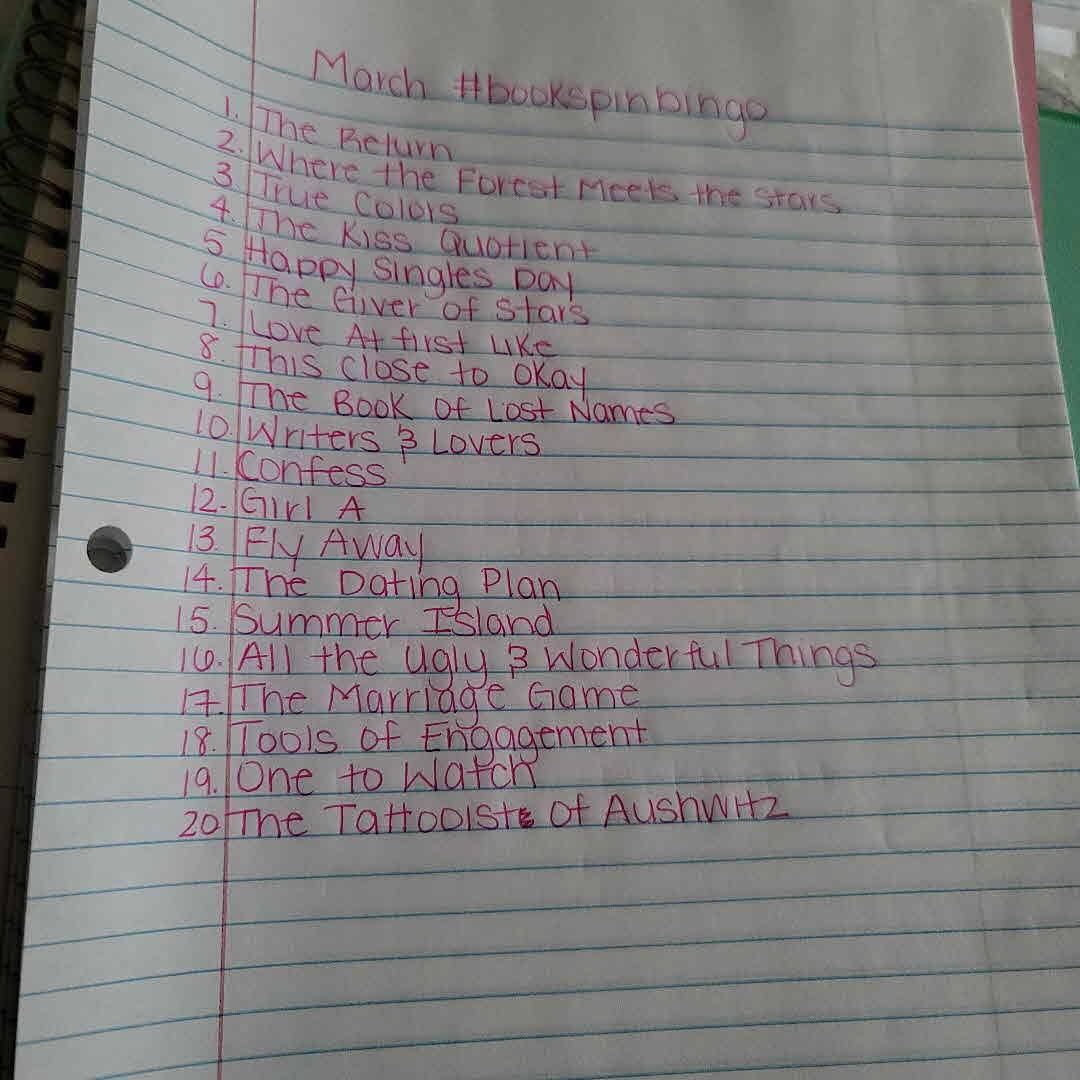 March #bookspinbingo
1. The Return
2. Where the Forest Meets the Stars
3. True Colors
4. The Kiss Quotient
5 Happy Singles Day
6. The Giver of Stars
7. Love At first Like
8. This Close to Okay
9. The Book of Lost Names
10. Writers & Lovers
11. Confess
12. Girl A
13. Fly Away
14. The Dating Plan
15. Summer Island
16. All the Ugly & Wonderful Things
17. The Marriage Game
18. Tools of Engagement
19. One to Watch
20 The Tattooist of Aushwitz